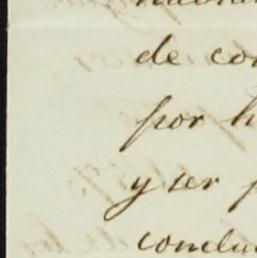 de con
por h
y ser p
conclu